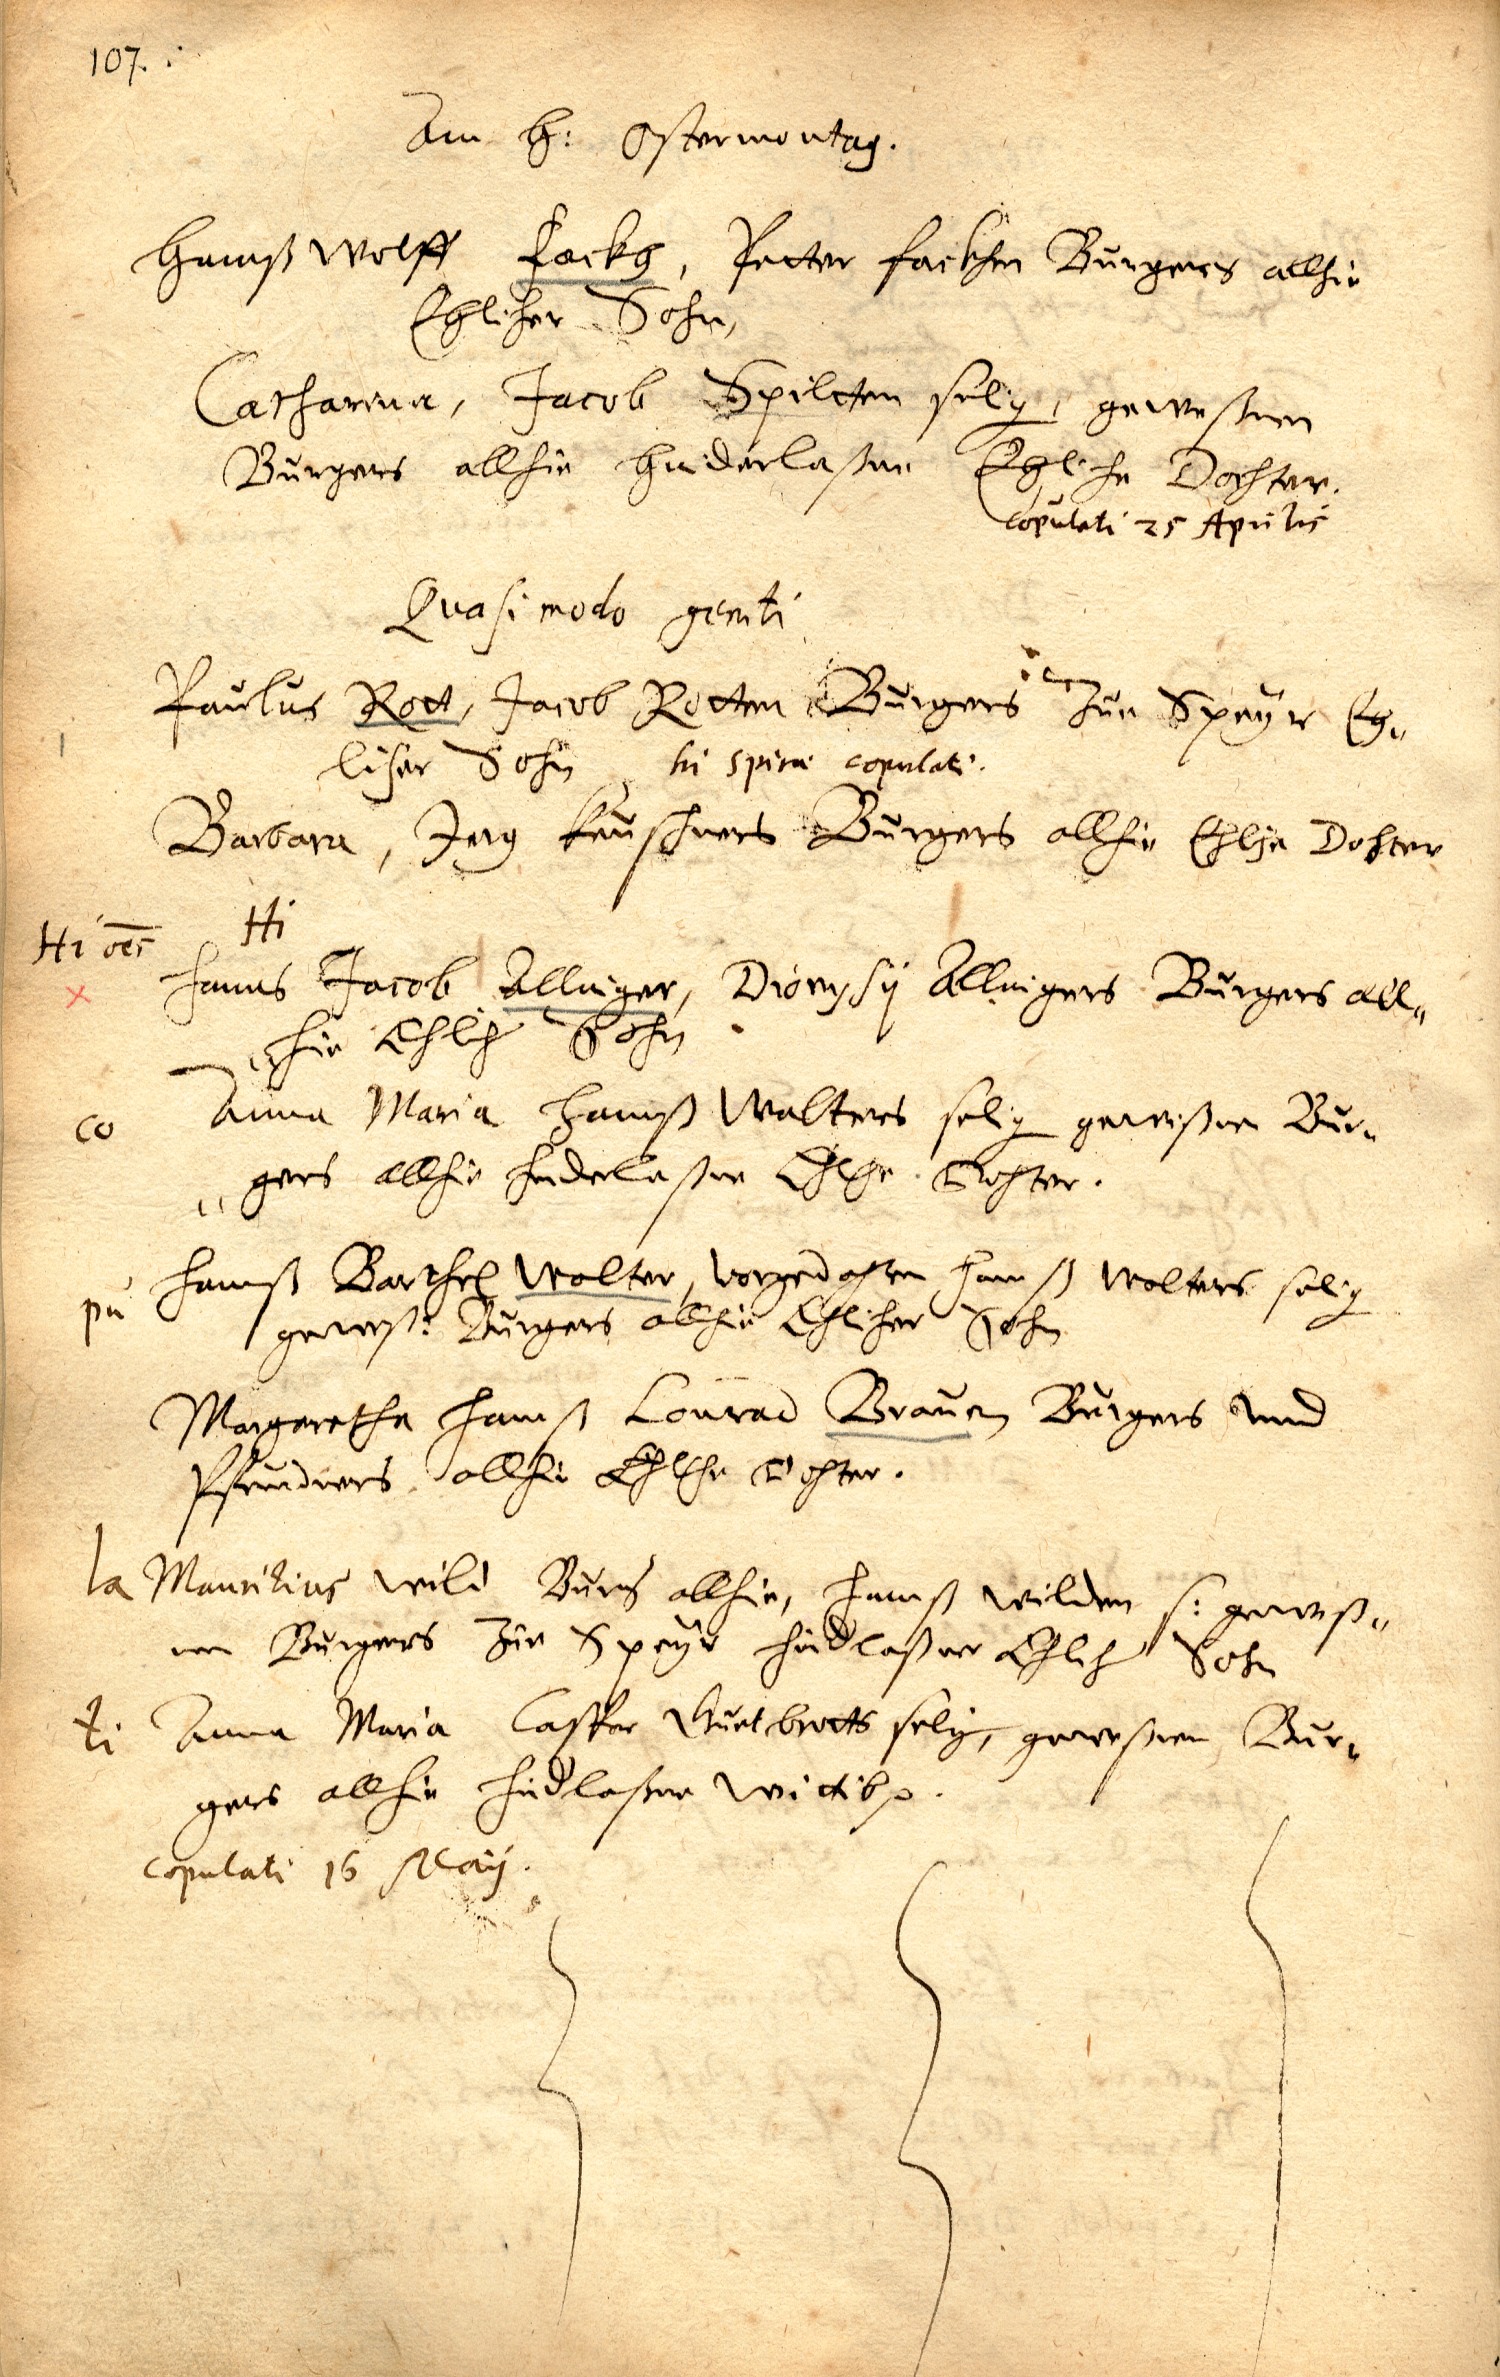 107.
Am H: Ostermontag.
Hannß Wolff Fackh, Petter Fackhen Burgers allhie
Ehlicher Sohn,
Catharina, Jacob Spilcten selig, geweßnen
Burgers allhie hinderlaßne Ehliche Dochter.
copulati 25 Aprilis
Quasimodo geniti
Paulus Rott, Jacob Rotten Burgers zue Speyr Eh„
licher Sohn hi spirae copulati.
Barbara, Jerg Keuschners Burgers allhie Ehliche Dochter
Hi
Hi oēs Hanns Jacob Allinger, Dionysij Allingers Burgers all„
„hie Ehlich Sohn
co Anna Maria Hannß Walters selig geweßnen Bur„
„gers allhie hinderlaßne Ehliche Dochter.
pu Hannß Barthel Walter, vorgedachten Hannß Walters selig
geweß: Burgers allhie Ehlicher Sohn
Margaretha Hannß Conrad Brauen Burgers und
Pfründners allhie Ehliche Dochter.
la Mauritius Wild Burg allhie, Hannß Wilden s: geweß„
nen Burgers zue Speyr hindlaßner Ehlich Sohn
ti Anna Maria Caspar Guetbrotts selig, geweßnen Bur„
gers allhie hindlaßne Wittib.
copulati 16 Maij.